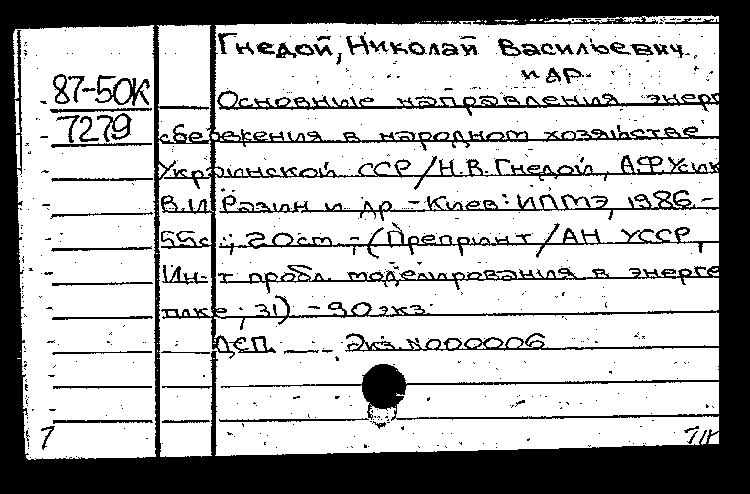 Гнедой, Николай Васильевич
и др.
87-50К
Основные направления энерго
7279
сбережения в народном хозяйстве
Украинской ССР / Н.В. Гнедой, А.Ф. Усик
В.И. Разин и др. - Киев: ИПМЭ, 1986. -
55с.; 20 см. - (Препринт / АН УССР,
Ин-т пробл. моделирования в энерге
тике; 31). - 90 экз.
ДСП. Экз. №000006
7